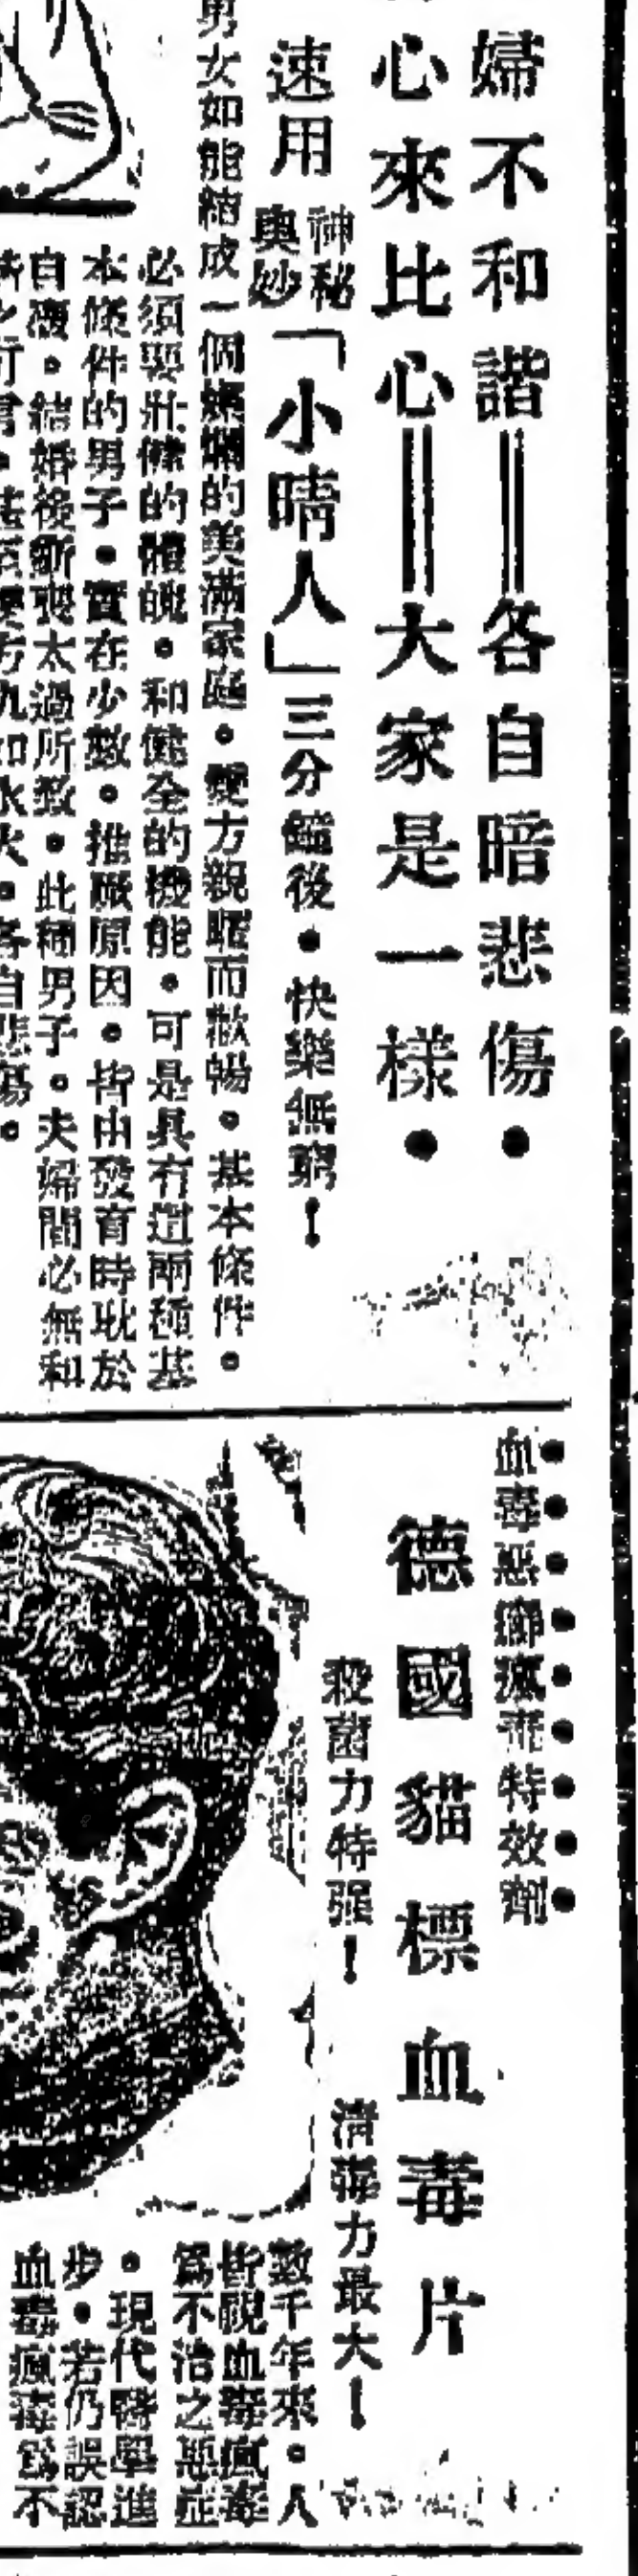 婦不和諧＝各自暗悲傷●
心來比心＝大家是一樣●
速用神秘奧妙「小晴人」三分鐘後●快樂無窮！
男女如能結成一個燦爛的美滿家庭。雙方親暱而歡暢。基本條件。
必須要壯健的體魄。和健全的機能。可是具有這兩種基
本條件的男子。實在少數。推厥原因。皆由發育時耽於
自瀆。結婚後斲喪太過所致。此種男子。夫婦間必無和
血毒惡瘡瘋毒特效劑
德國貓標血毒片
殺菌力特强！ 清毒力最大！
數千年來。人
皆說血毒瘋毒
爲不治之惡症
。現代醫學進
步。若仍誤認
血毒瘋毒爲不